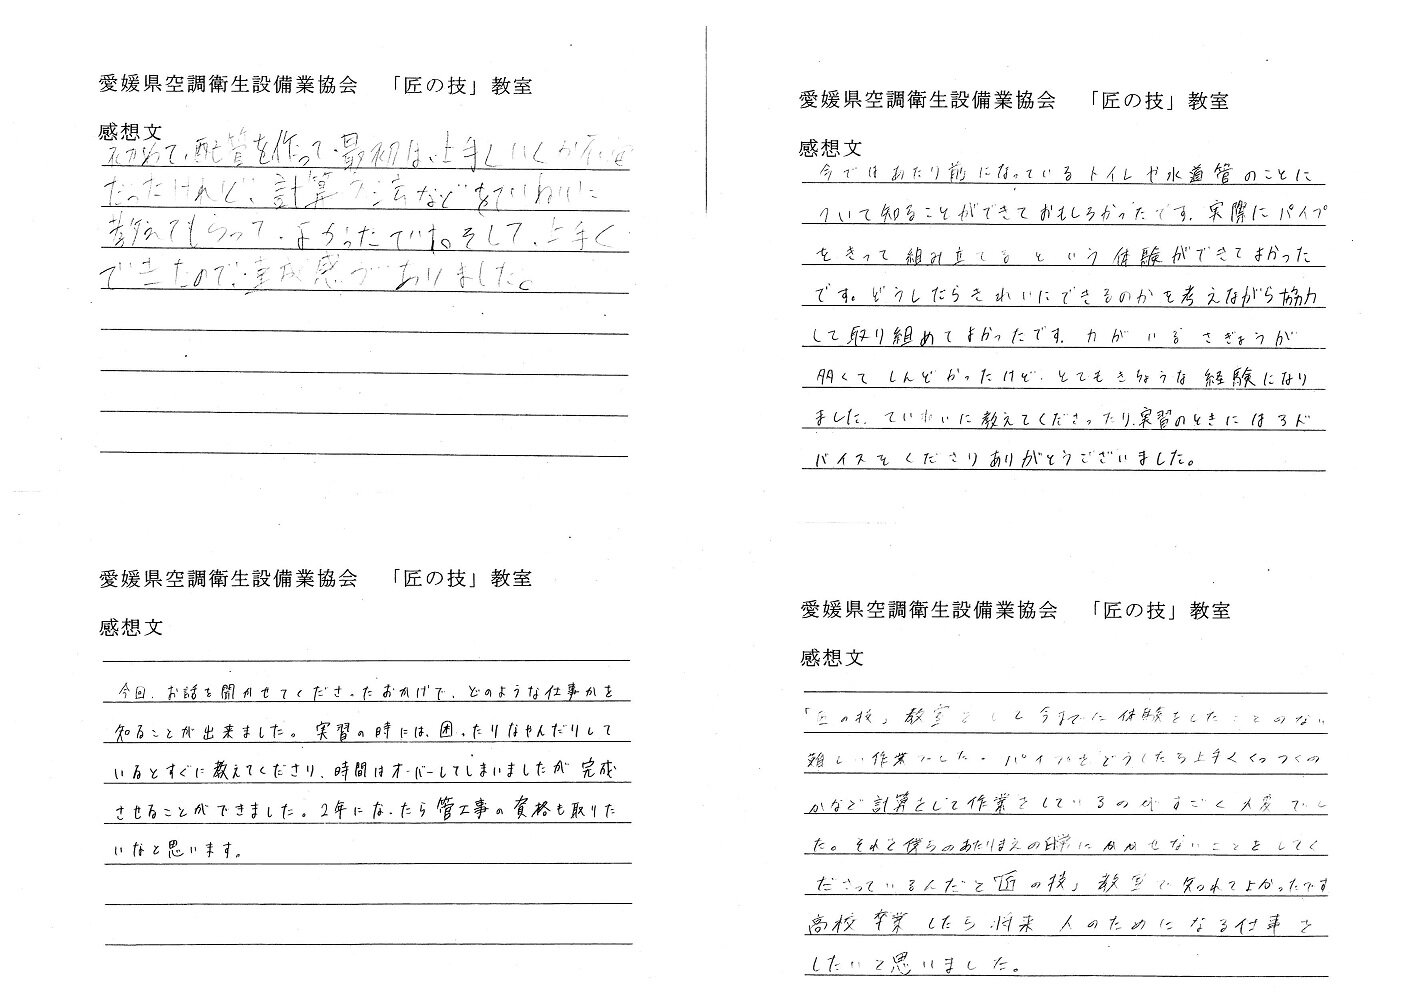 愛媛県空調衛生設備業協会 「匠の技」教室
感想文
初めて、配管を作って、最初は、上手くいくか不安
だったけれど、計算方法などをていねいに
教えてもらって、よかったです。そして、上手く
できたので、達成感がありました。
愛媛県空調衛生設備業協会 「匠の技」教室
感想文
今ではあたり前になっているトイレや水道管のことに
ついて知ることができておもしろかったです。実際にパイプ
をきって組み立てるという体験ができてよかった
です。どうしたらきれいにできるのかを考えながら協力
して取り組めてよかったです。力がいるさぎょうが
多くてしんどかったけど、とてもきちょうな経験になり
ました。ていねいに教えてくださったり、実習のときにはアド
バイスをくださりありがとうございました。
愛媛県空調衛生設備業協会 「匠の技」教室
感想文
今回、お話を聞かせてくださったおかげで、どのような仕事かを
知ることが出来ました。実習の時には、困ったりなやんだりして
いるとすぐに教えてくださり、時間はオーバーしてしまいましたが完成
させることができました。2年になったら管工事の資格も取りた
いなと思います。
愛媛県空調衛生設備業協会 「匠の技」教室
感想文
「匠の技」教室をして今までに体験をしたことのない
難しい作業でした。パイプをどうしたら上手くくっつくの
かなど計算をして作業をしているのがすごく大変でし
た。それと僕らのあたりまえの日常にかかせないことをしてく
ださっているんだと「匠の技」教室で知れてよかったです
高校卒業したら将来人のためになる仕事を
したいと思いました。